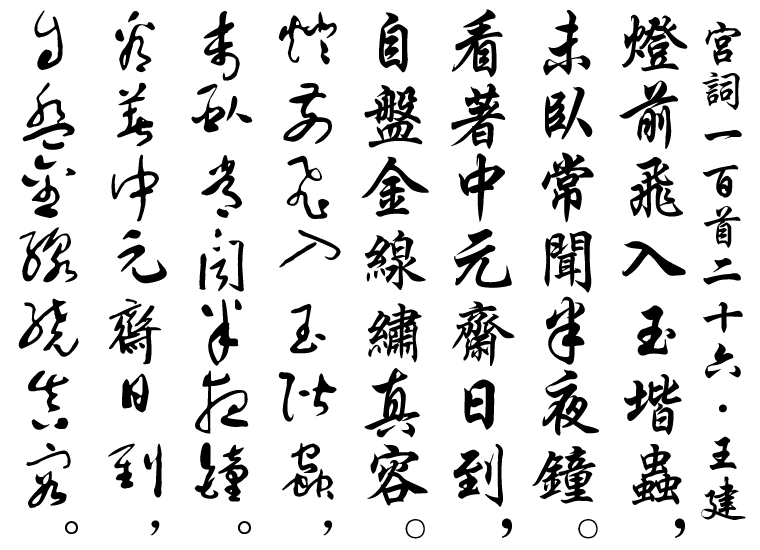 宮詞一百首二十六・王建
燈前飛入玉堦蟲，
未臥常聞半夜鐘。
看著中元齋日到，
自盤金線繡真容。
燈前飛入玉階蟲，
未臥常聞半夜鐘。
看著中元齋日到，
自盤金線繡真容。